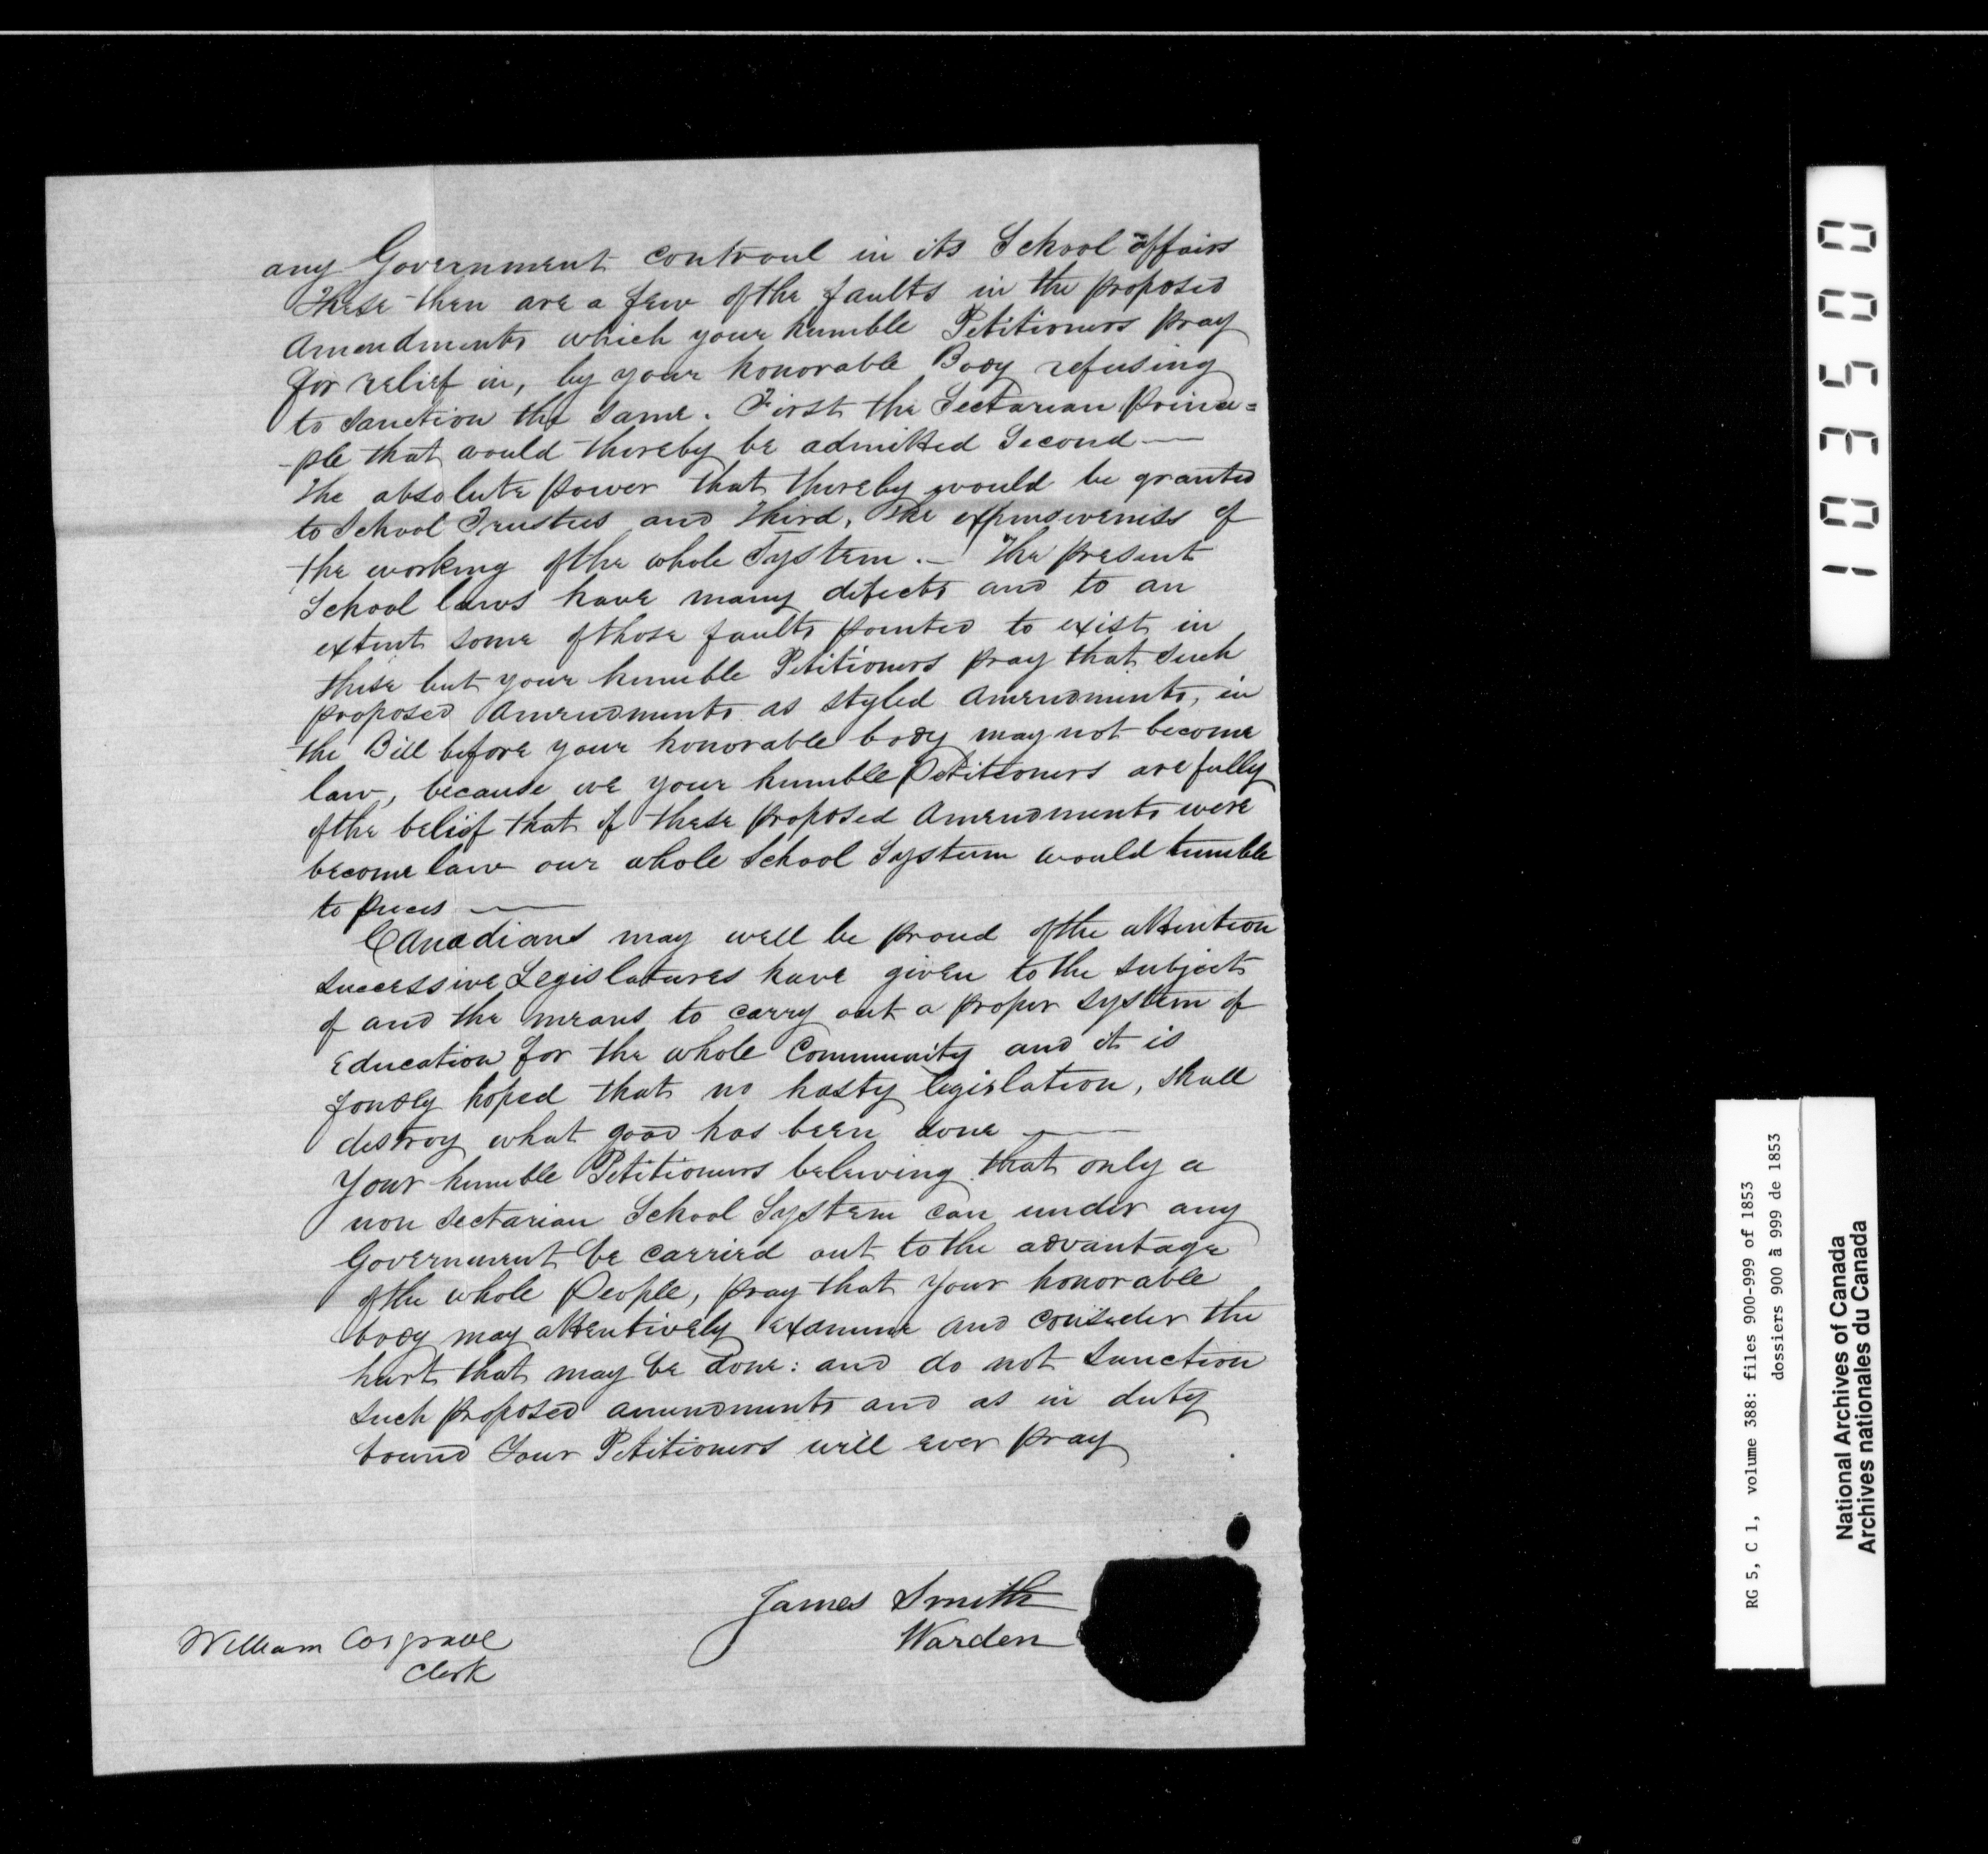 any Government controul in its School affairs
These then are a few of the faults in the proposed
Amendments which your humble Petitioners pray
for relief in, by your honorable Body refusing
to sanction the same. First the Sectarian princi=
-ple that would thereby be admitted Second —
the absolute power that thereby would be granted
to School Trustees and third, the expensiveness of
the working of the whole System. — The present
School laws have many defects and to an
extent some of those faults pointed to exist in
these but your humble Petitioners pray that such
proposed Amendments as styled Amendments, in
the Bill before your honorable body may not become
law, because we your humble Petitioners are fully
of the belief that if these proposed Amendments were
become law our whole School System would tumble
to pieces —
Canadians may well be proud of the attention
successive Legislatures have given to the subject
of and the means to carry out a proper system of
Education for the whole Community and it is
fondly hoped that no hasty legislation, shall
destroy what good has been done —
Your humble Petitioners beleiving that only a
non sectarian School System can under any
Government be carried out to the advantage
of the whole People, pray that your honorable
body may attentively examine and consider the
hurt that may be done: and do not sanction
such proposed amendments and as in duty
bound Your Petitioners will ever pray
James Smith
Warden
William Cosgrave
Clerk
103500
RG 5, C 1, volume 388: files 900-999 of 1853
dossiers 900 à 999 de 1853
National Archives of Canada
Archives nationales du Canada